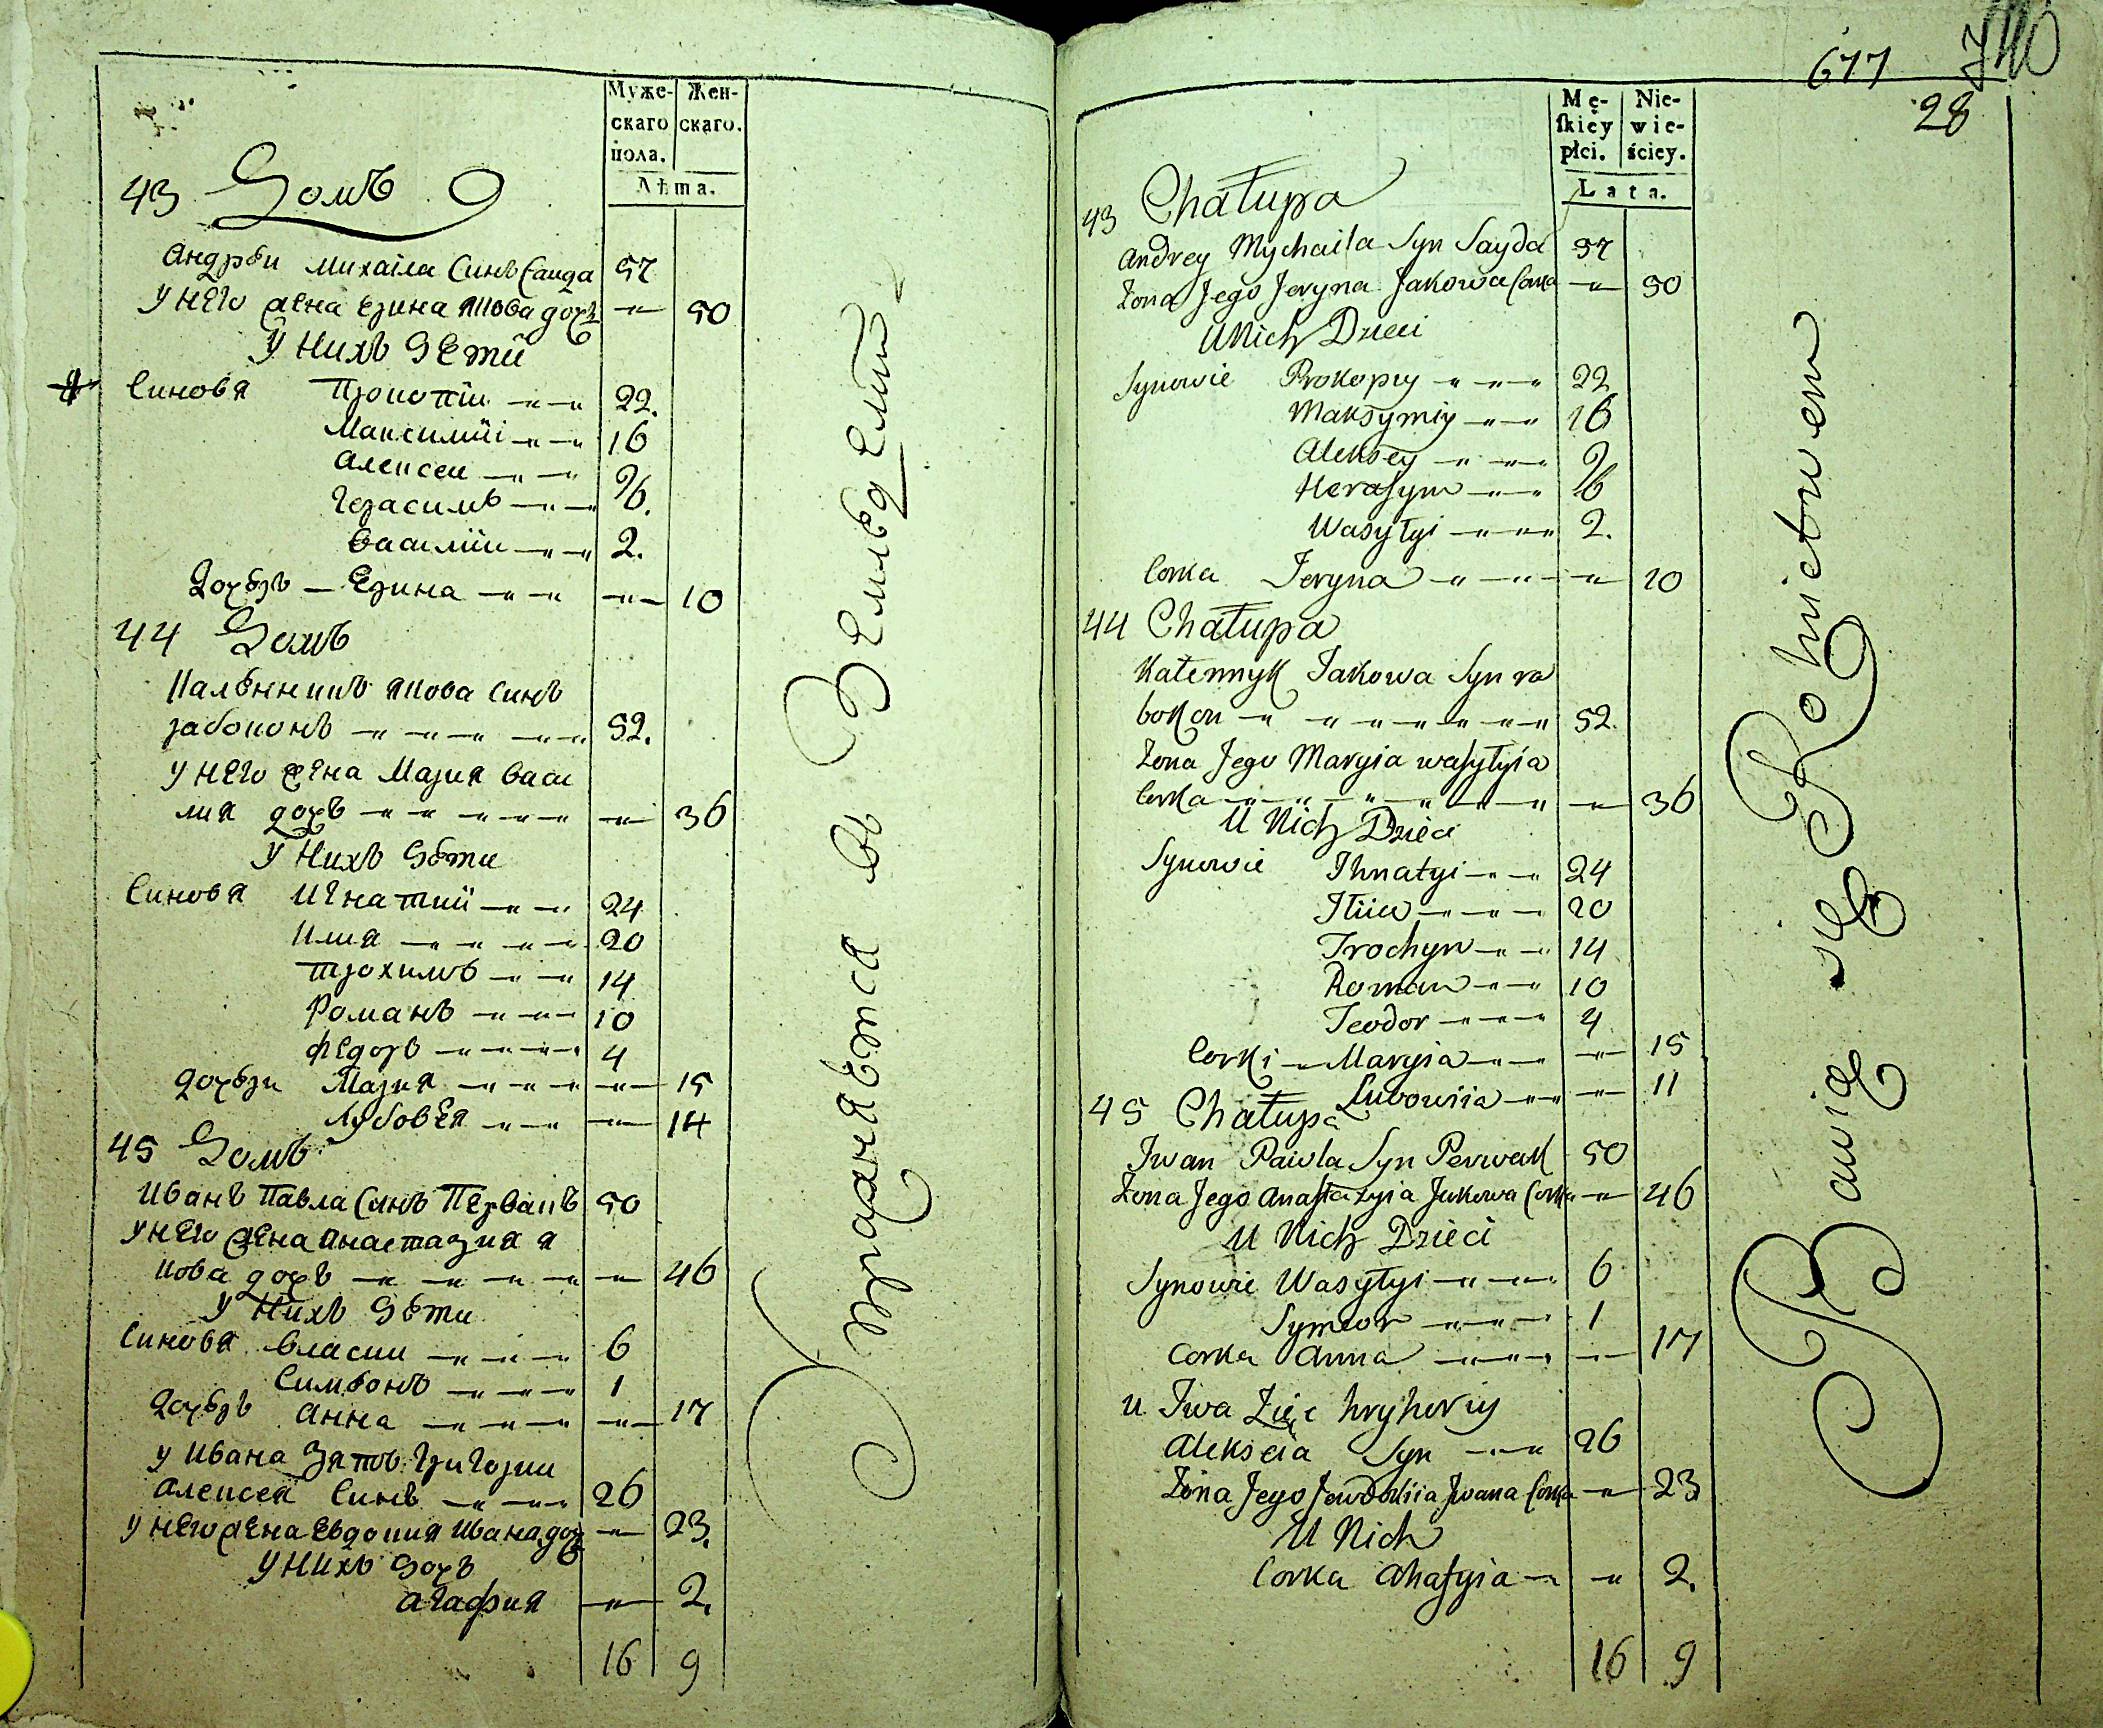 Муже-
скаго
пола.
Жен-
скаго.
Лѣта.
43 Домъ
Андрѣи Михаила Синъ Саида 57
У него жена Ерина Якова дочь 50
У нихъ Дети
Синовя Прокопіи 22.
Максиміи 16
Алексеи 9
Герасимъ 6.
Василіи 2.
Дочѣръ Ерина 10
44 Домъ
Калѣнникъ Якова синъ
рабоконь 52.
У него жена Мария Васи
лия дочъ 36
У нихъ Дѣти
Синовя Игнатии 24
Илия 20
Трохимъ 14
Романъ 10
Федоръ 4
дочѣри Мария 15
Любовея 11
45 Домъ
Иванъ Павла Синъ Первакъ 50
У него жена Анастазия я
кова дочъ 46
У нихъ Дѣти
Синовя Власии 6
Симѣонъ 1
Дочѣръ Анна 17
У Ивана Зять Григории
Алексея Синъ 26
У него жена Евдокия Ивана доч 23.
У нихъ Дочъ
Агафия 2.
16 9
Упражняѣтся въ Земледелии
677
28
Mę-
skiey
płci.
Nie-
wie-
ściey.
Lata.
43 Chałupa
Andrey Mychaiła Syn Sayda 57
Żona Jego Jeryna Jakowa Corka 50
U Nich Dzieci
Synowie Prokopiy 22
Maksymiy 16
Aleksey 9
Herasym 6
Wasyłyi 2.
Corka Jeryna 10
44 Chałupa
Kałennyk Jakowa Syn ra
bokon 52.
Żona Jego Maryia wasyłyia
Corka 36
U Nich Dzieci
Synowie Ihnatyi 24
Iłiia 20
Trochym 14
Roman 10
Teodor 4
Corki Maryia 15
Lubowiia 11
45 Chałupa
Iwan Pawła Syn Perwak 50
Żona Jego Anastazyia Jakowa Corka 46
U Nich Dzieci
Synowie Wasyłyi 6
Symeon 1
Corka Anna 17
u Iwa Zięć hryhoriy
Alekseia Syn 26
Żona Jego Jewdokiia Iwana Corka 23
U Nich
Corka Ahafyia 2.
16 9
Bawią się Rolnictwem